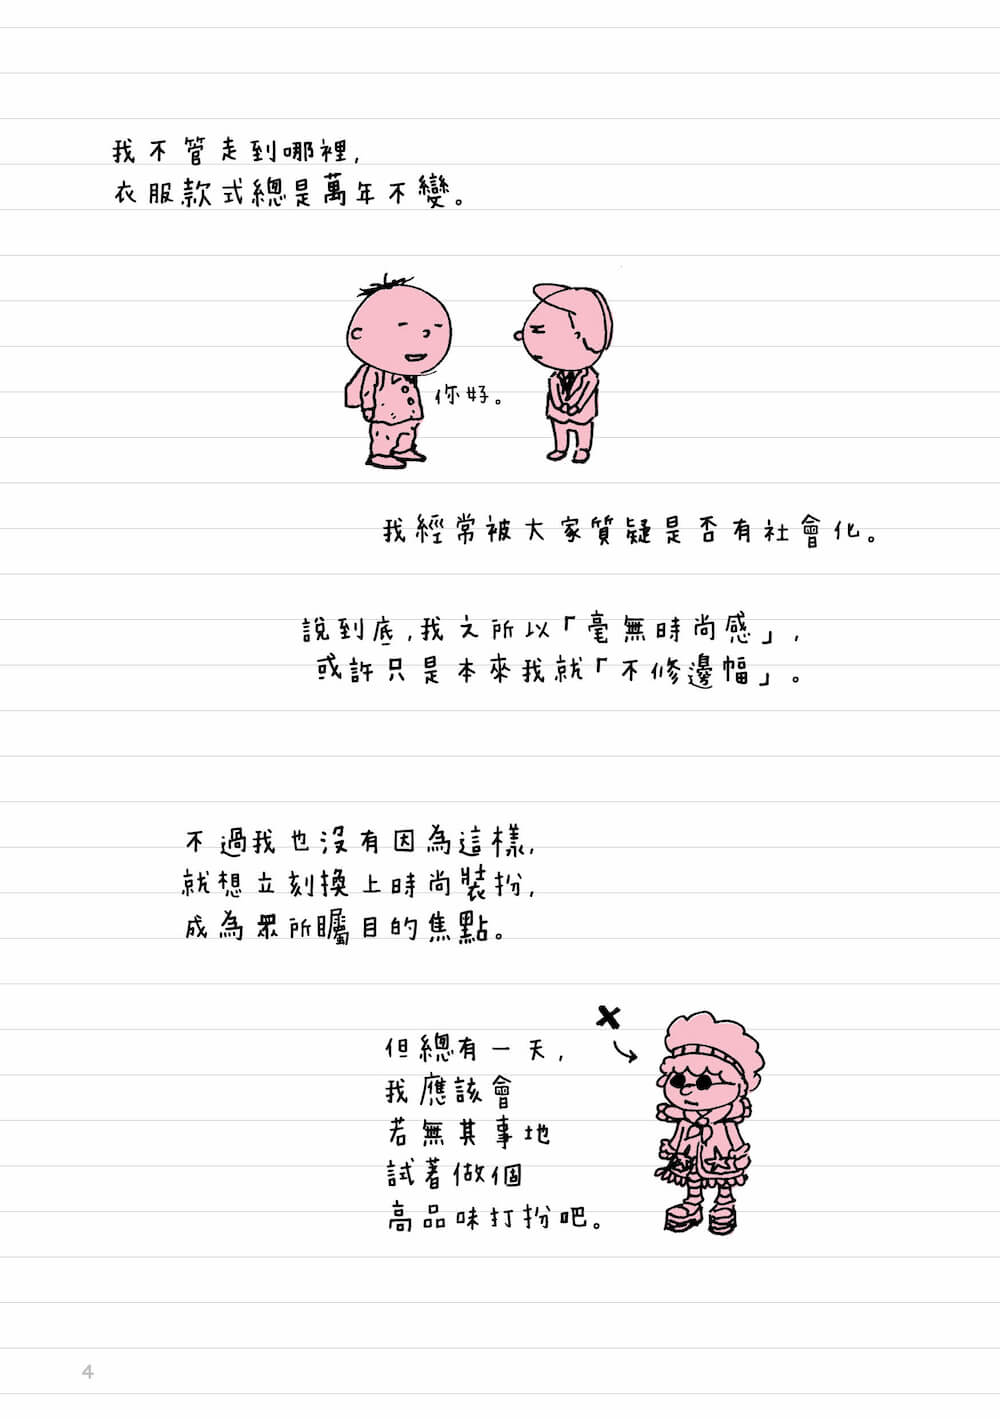 我不管走到哪裡,
衣服款式總是萬年不變。
你好。
我經常被大家質疑是否有社會化。
說到底,我之所以「毫無時尚感」,
或許只是本來我就「不修邊幅」。
不過我也沒有因為這樣,
就想立刻換上時尚裝扮,
成為眾所矚目的焦點。
但總有一天,
我應該會
若無其事地
試著做個
高品味打扮吧。
4